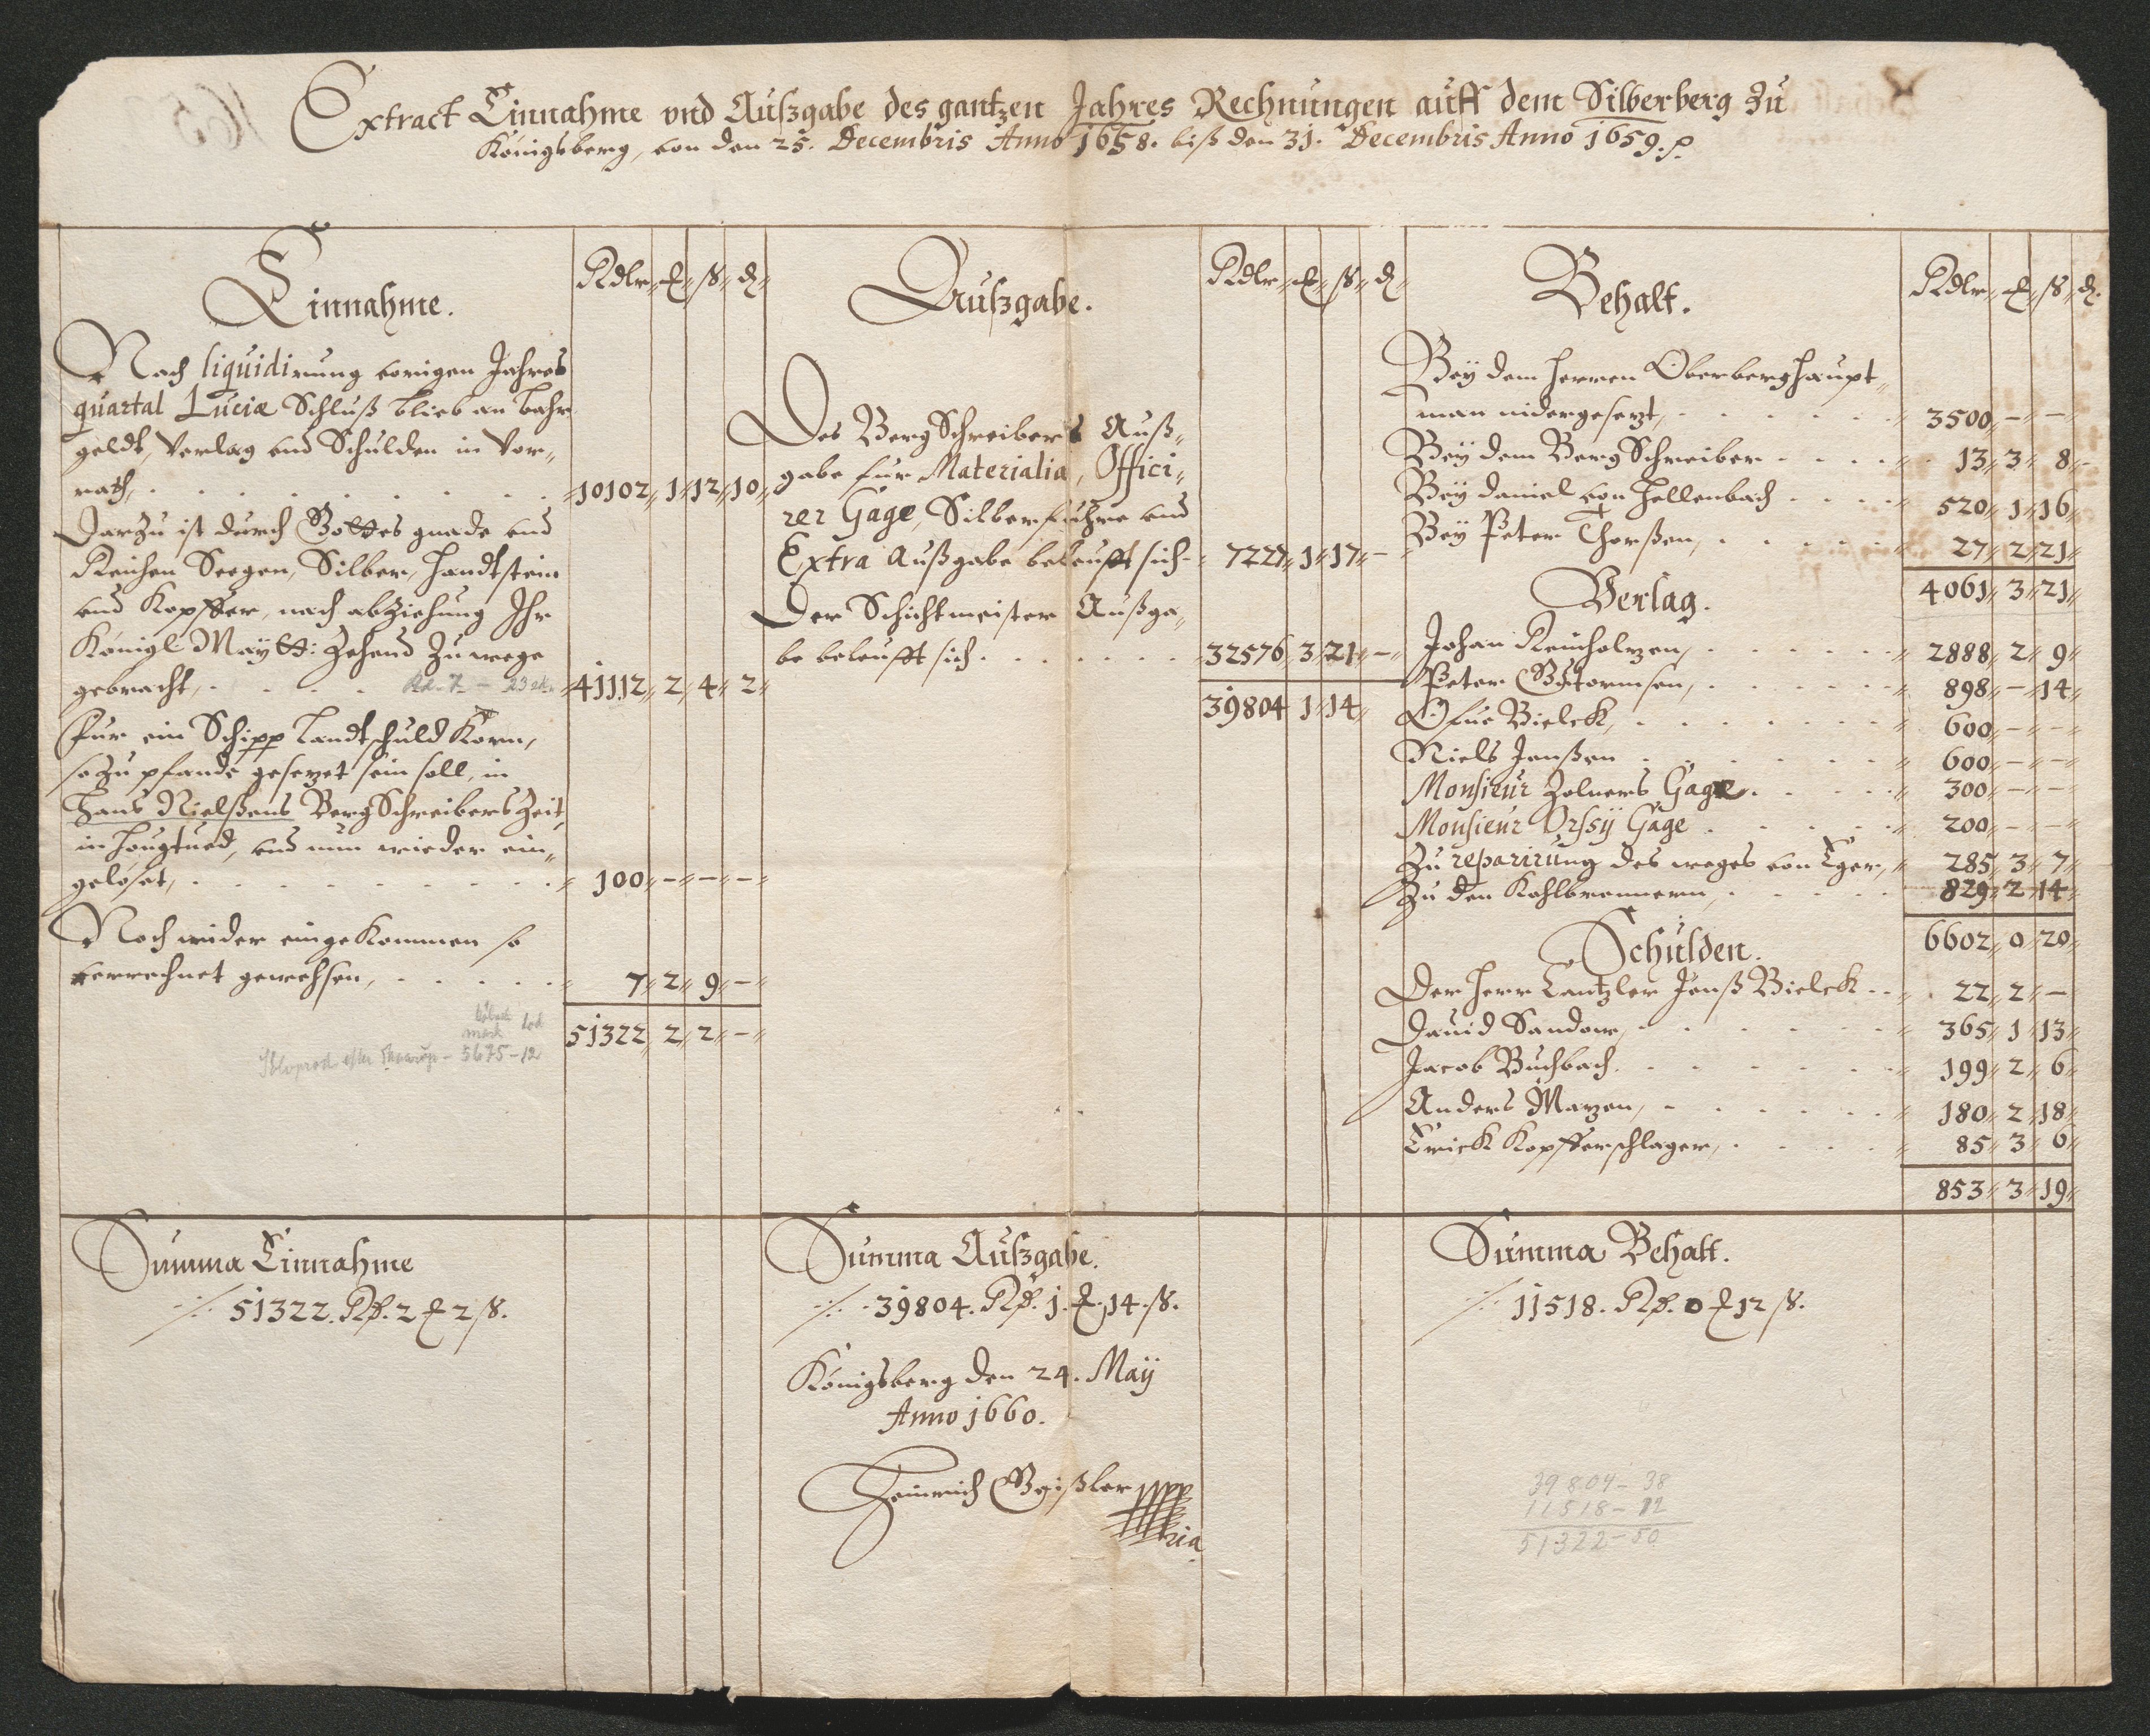 Extract Einnahme vnd Außgabe des gantzen Jahres Rechnungen auff dem Silberberg zu
Königsberg, von den 25. Decembris Anno 1658. biß den 31. Decembris Anno 1659.
Einnahme.
Rdlr
Nach liquidirung vorigen Jahres
quartal Luciæ Schluß blieb an bahr
geldt, Verlag vnd Schulden in Vor„
rath, 10102 1 12 10
Darzu ist durch Gottes gnade vnd
Reichen Seegen, Silber, Handtstein
vnd Kopffer, nach abziehung Ihr
Königl Maytt: Zehend zu wege
gebracht, 41112 2 4 2
fur ein Schipp Landtschuld Korn,
so zu pfande gesezet sein soll, in
Hans Nielßens BergSchreibers Zeit,
vnd nun wieder ein„
gelöset, 100 - - -
Noch wider eingekommen so
verrechnet gewehsen, 7 2 9 -
51322 2 2 -
mark lod
5675-12
Außgabe.
Rdlr
Des BergSchreibers Auß„
gabe fur Materialia, Offici„
rer Gage, Silberfuhre vnd
Extra Außgabe beleufft sich 7227 1 17 -
Der Schichtmeister Außga„
be beleufft sich 32576 3 21 -
39804 1 14
Behalt.
Rdlr
Bey dem Herren Oberberghaupt„
man nidergesezt, 3500 - -
Bey dem BergSchreiber 13 3 8
Bey Daniel von Hellenbach 520 1 16
Bey Peter Thorßen, 27 2 21
4061 3 21
Verlag.
Johan Reicholzen, 2888 2 9
Peter Gutormsen, 898 - 14
Ofue Bielck, 600 - -
Niels Jenßen 600 - -
Monsieur Zolners Gage 300 - -
Monsieur Orsÿ Gage 200 - -
Zu reparirung des weges von Eger, 285 3 7
Zu den Kohlbrennern, 829 2 14
6602 0 20
Schulden.
Der Herr Cantzler Jenß Bielck 22 2 -
Dauid Sandow, 365 1 13
Jacob Buchbach 199 2 6
Anders Mazen, 180 2 18
Erick Kopfferschlager, 85 3 6
853 3 19
Summa Einnahme
51322. Rß. 2 2 ß.
Summa Außgabe.
39804. Rß. 1. 14. ß.
Königsberg den 24. Maÿ
Anno 1660.
Heinrich Geißler
Summa Behalt.
11518. Rß. 0 12 ß.
39804-38
11518-12
51322-50